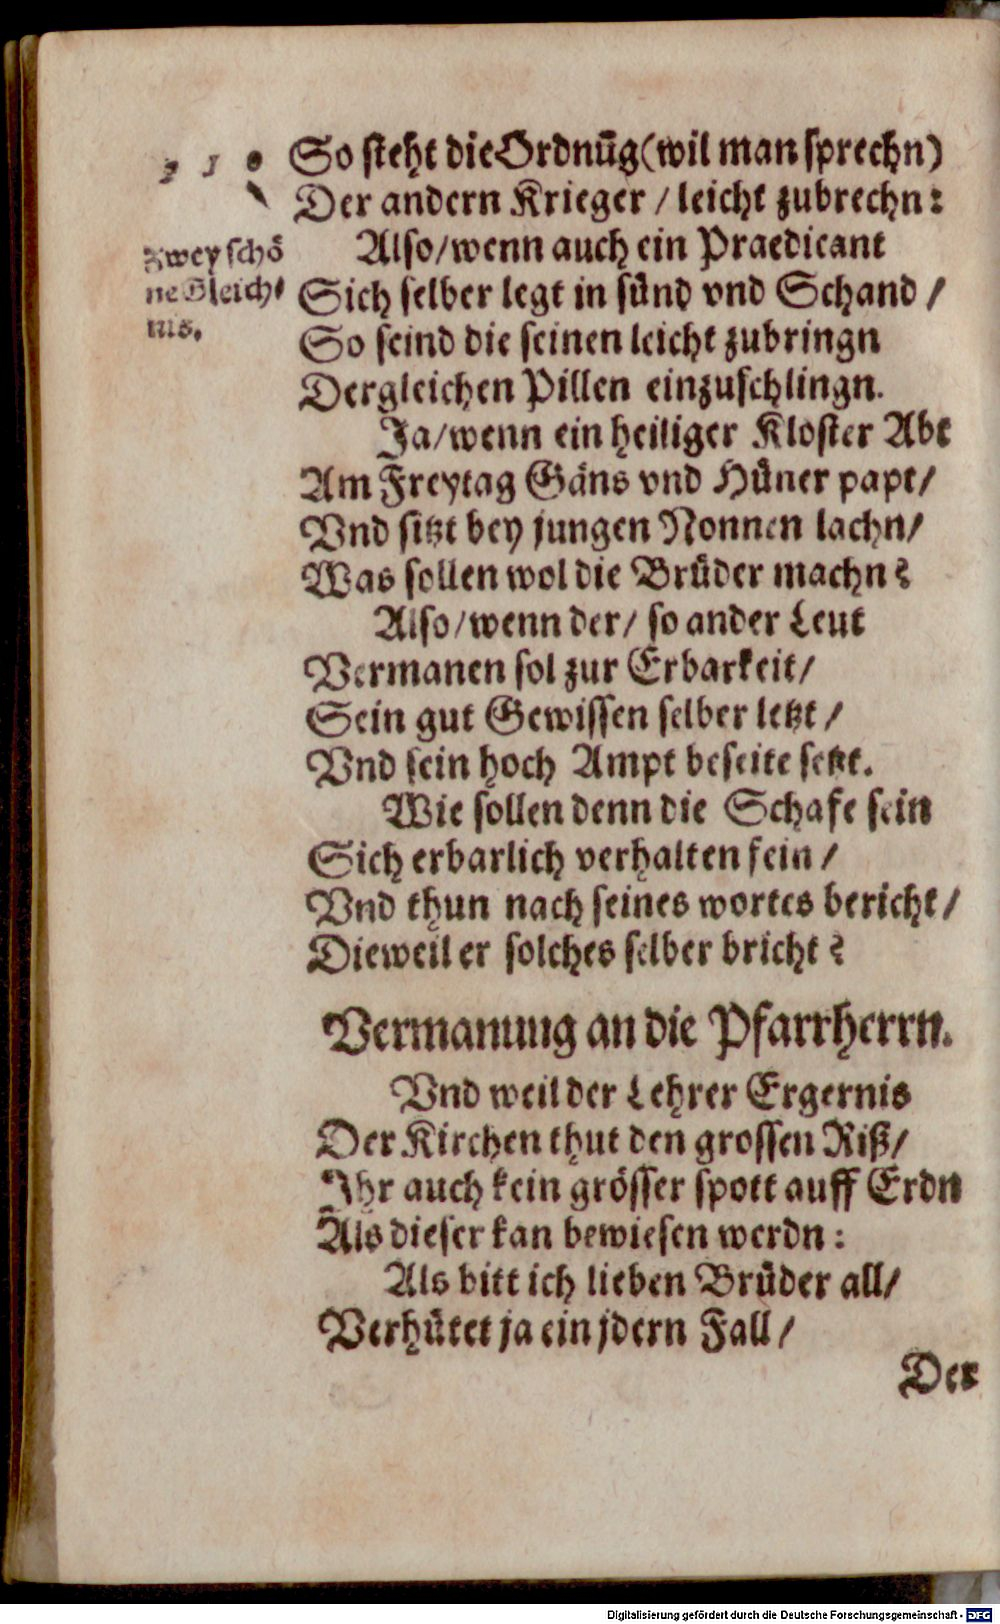 So steht die Ordnūg (wil man sprechn)
Der andern Krieger / leicht zubrechn:
Zwey schö
ne Gleich⸗
nis.
Also / wenn auch ein Praedicant
Sich selber legt in sünd vnd Schand /
So seind die seinen leicht zubringn
Dergleichen Pillen einzuschlingn.
Ja / wenn ein heiliger Kloster Abt
Am Freytag Gäns vnd Hüner papt /
Vnd sitzt bey jungen Nonnen lachn /
Was sollen wol die Brüder machn?
Also / wenn der / so ander Leut
Vermanen sol zur Erbarkeit /
Sein gut Gewissen selber letzt /
Vnd sein hoch Ampt beseite setzt.
Wie sollen denn die Schafe sein
Sich erbarlich verhalten fein /
Vnd thun nach seines wortes bericht /
Dieweil er solches selber bricht?
Vermanung an die Pfarrherrn.
Vnd weil der Lehrer Ergernis
Der Kirchen thut den grossen Riß /
Ihr auch kein grösser spott auff Erdn
Als dieser kan bewiesen werdn:
Als bitt ich lieben Brüder all /
Verhütet ja ein jdern Fall /
Der
Digitalisierung gefördert durch die Deutsche Forschungsgemeinschaft - DFG